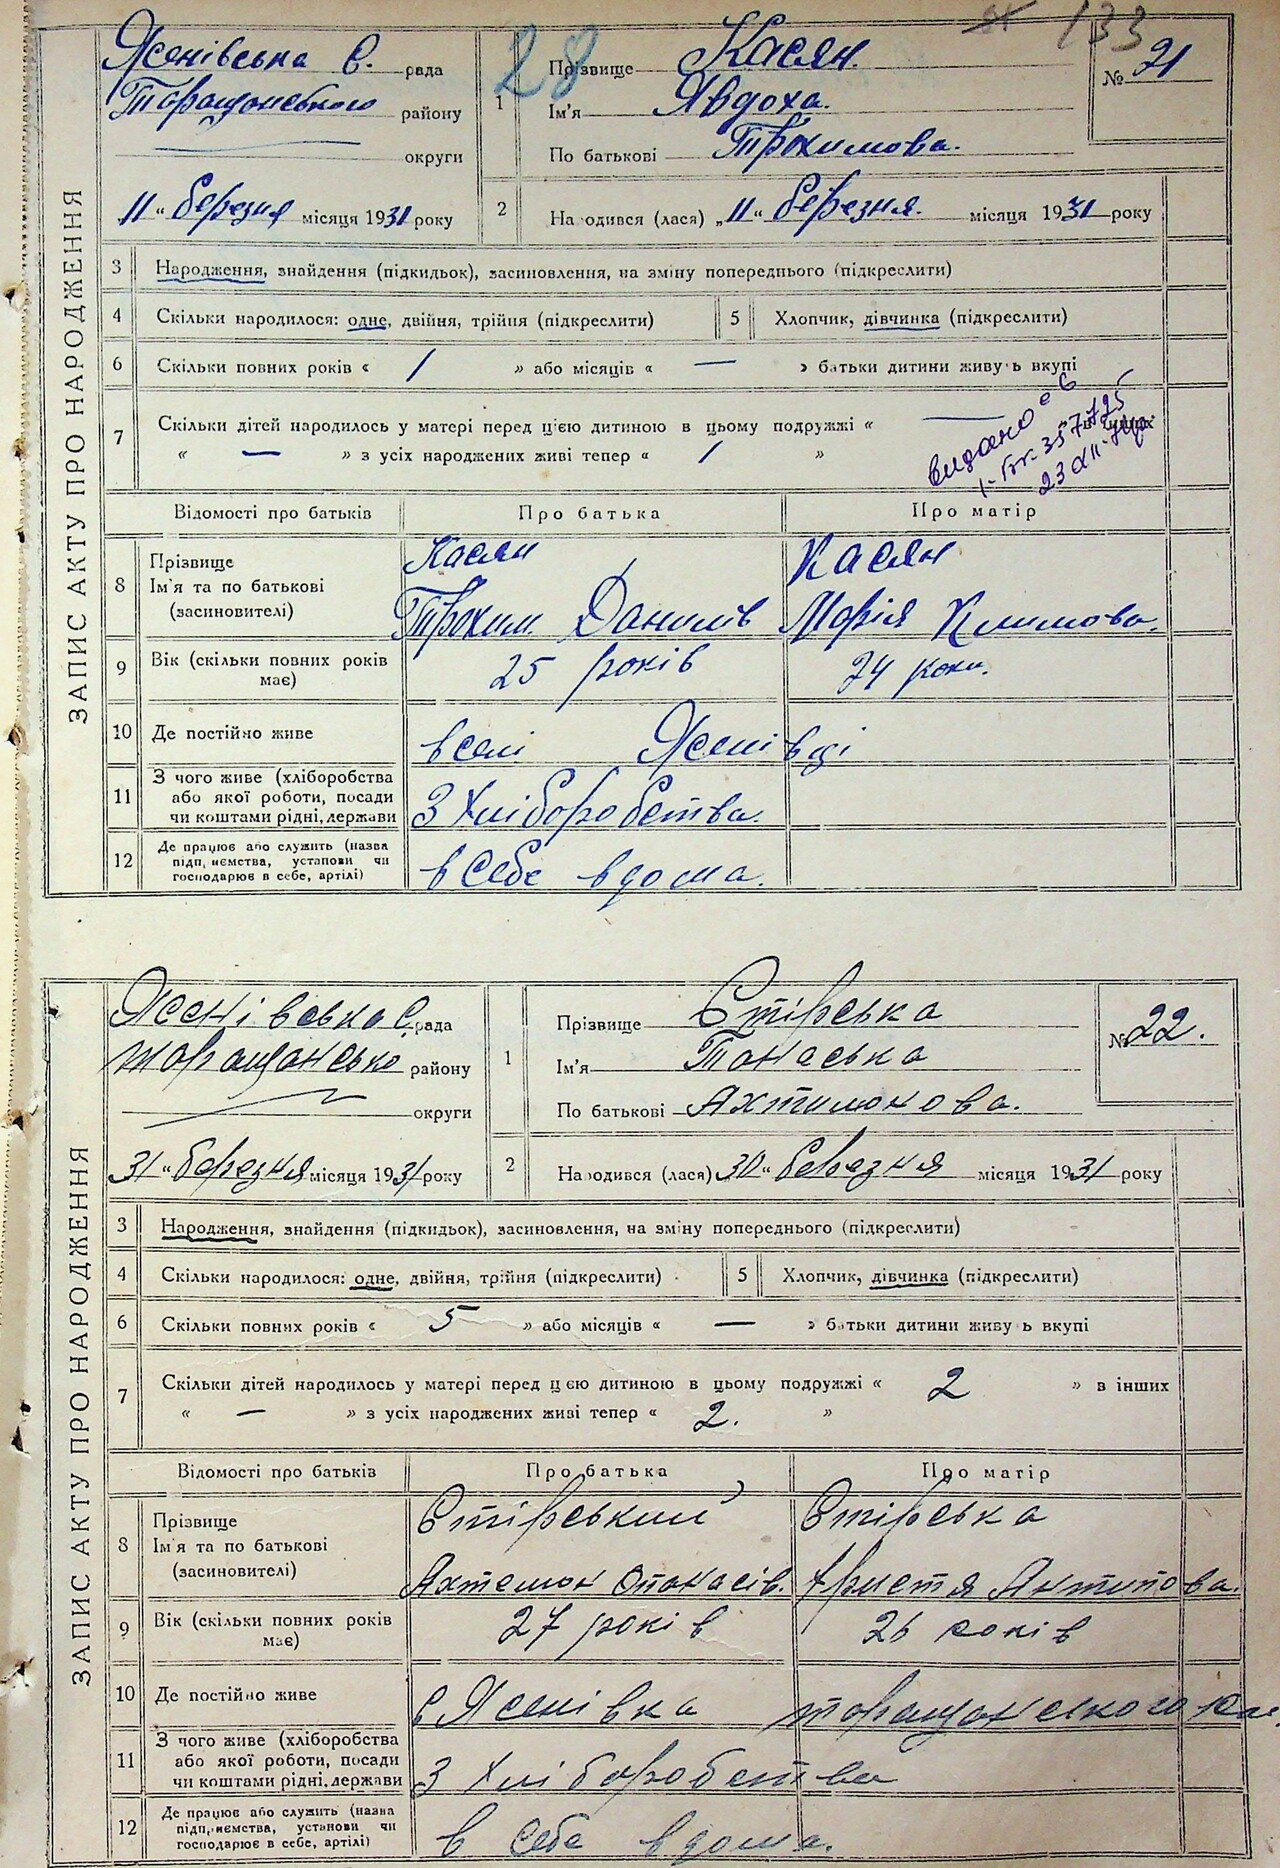 133
28
ЗАПИС АКТУ ПРО НАРОДЖЕННЯ
Ясенівська С. рада
Таращанського району
округи
11 " березня місяця 1931 року
1
Прізвище Касян.
Ім'я Явдоха.
По батькові Трохимова.
№ 21
2 Народився (лася) „11" березня. місяця 1931 року
3 Народження, знайдення (підкидьок), засиновлення, на зміну попереднього (підкреслити)
4 Скільки народилося: одне, двійня, трійня (підкреслити)
5 Хлопчик, дівчинка (підкреслити)
6 Скільки повних років « 1 » або місяців « — » батьки дитини живуть вкупі
7 Скільки дітей народилось у матері перед цією дитиною в цьому подружжі « — » в інших
« — » з усіх народжених живі тепер « 1 »
видано
23 XII
Відомості про батьків Про батька Про матір
8 Прізвище Ім'я та по батькові (засиновителі)
Касян Касян
Трохим Данилів Марія Климова.
9 Вік (скільки повних років має) 25 років 24 роки.
10 Де постійно живе в селі Ясенівці
11 З чого живе (хліборобства або якої роботи, посади чи коштами рідні, держави З Хліборобства.
12 Де працює або служить (назва підприємства, установи чи господарює в себе, артілі) в себе вдома.
ЗАПИС АКТУ ПРО НАРОДЖЕННЯ
Ясенівська С. рада
Таращансько району
округи
31 " березня місяця 1931 року
1
Прізвище Стірська
Ім'я Танаська
По батькові Ахтимонова.
№ 22.
2 Народився (лася) 30 " березня місяця 1931 року
3 Народження, знайдення (підкидьок), засиновлення, на зміну попереднього (підкреслити)
4 Скільки народилося: одне, двійня, трійня (підкреслити)
5 Хлопчик, дівчинка (підкреслити)
6 Скільки повних років « 5 » або місяців « — » батьки дитини живуть вкупі
7 Скільки дітей народилось у матері перед цією дитиною в цьому подружжі « 2 » в інших
« — » з усіх народжених живі тепер « 2. »
Відомості про батьків Про батька Про матір
8 Прізвище Ім'я та по батькові (засиновителі)
Стірський Стірська
Ахтемон Опанасів. Христя Антипова.
9 Вік (скільки повних років має) 27 років 26 років
10 Де постійно живе с Ясенівка таращанского
11 З чого живе (хліборобства або якої роботи, посади чи коштами рідні, держави З Хліборобства
12 Де працює або служить (назва підприємства, установи чи господарює в себе, артілі) в себе вдома.